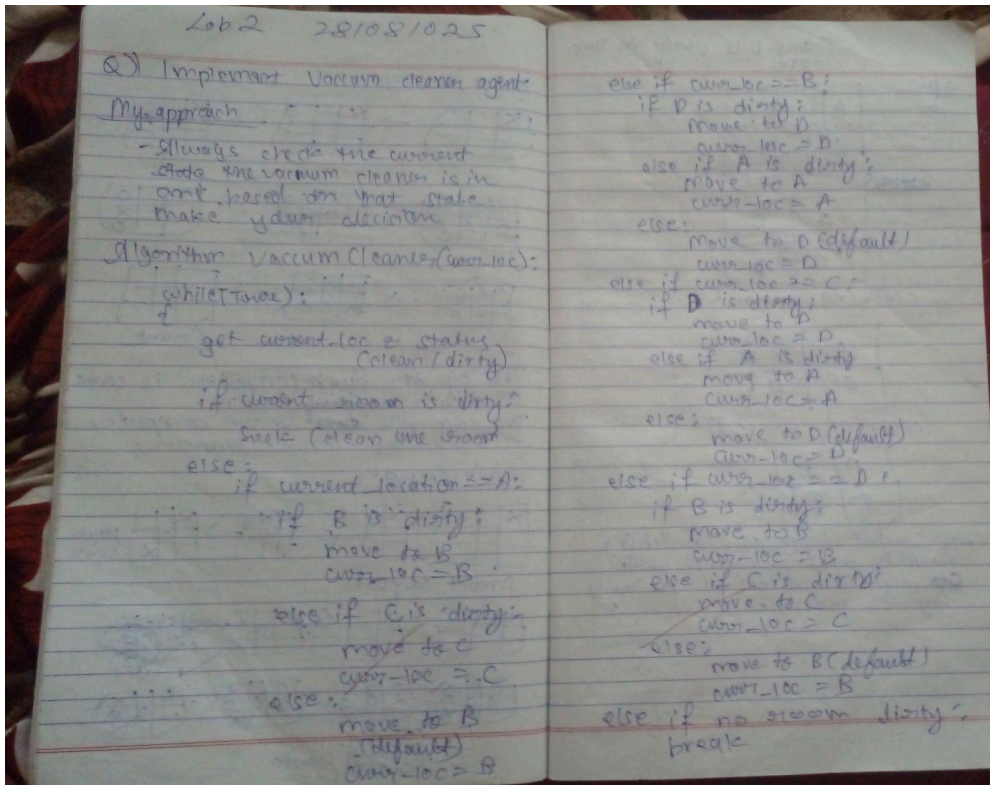 Lab 2 28/08/025
Q) Implement Vaccum cleaner agent
My approach
- Always check the current
state the vacuum cleaner is in
and based on that state
make your decision
Algorithm Vaccum Cleaner(curr_loc):
while(True):
{
get current_loc & status
(clean/dirty)
if current room is dirty:
Suck (clean the room
else:
if current_location == A:
if B is dirty:
move to B
curr_loc = B
else if C is dirty:
move to C
curr_loc = C
else:
move to B
(default)
curr_loc = B
else if curr_loc == B:
if D is dirty:
move to D
curr_loc = D
else if A is dirty:
move to A
curr_loc = A
else:
move to D (default)
curr_loc = D
else if curr_loc == C:
if D is dirty:
move to D
curr_loc = D
else if A is dirty
move to A
curr_loc = A
else:
move to D (default)
curr_loc = D
else if curr_loc == D:
if B is dirty:
move to B
curr_loc = B
else if C is dirty:
move to C
curr_loc = C
else:
move to B (default)
curr_loc = B
else if no room dirty:
break